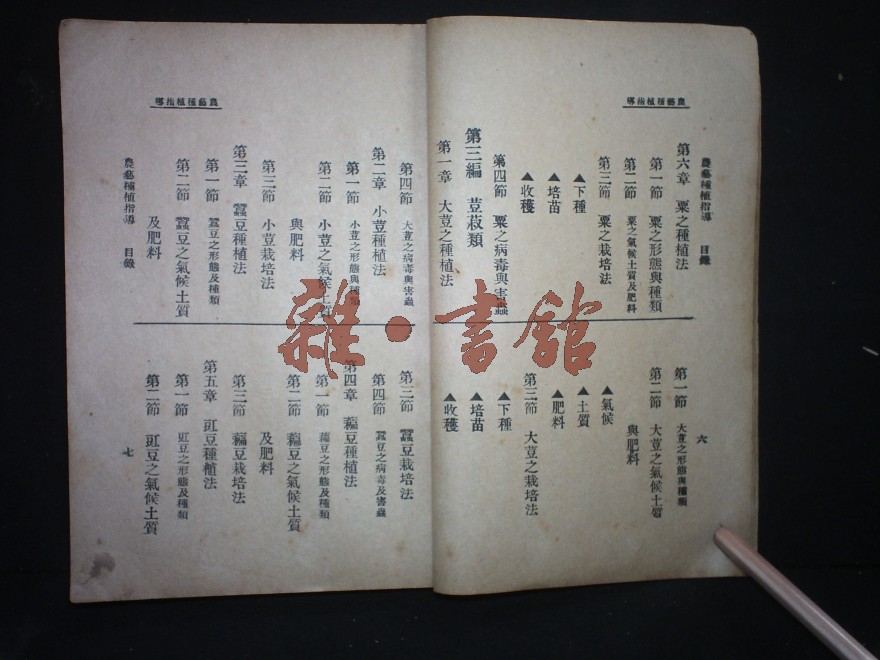 農藝種植指導
農藝種植指導 目錄
第六章 粟之種植法
第一節 粟之形態與種類
第二節 粟之氣候土質及肥料
第三節 粟之栽培法
▲下種
▲培苗
▲收穫
第四節 粟之病毒與害蟲
第三編 荳菽類
第一章 大荳之種植法
六
第一節 大荳之形態與種類
第二節 大荳之氣候土質
與肥料
▲氣候
▲土質
▲肥料
第三節 大荳之栽培法
▲下種
▲培苗
▲收穫
農藝種植指導
第四節 大荳之病毒與害蟲
第二章 小荳種植法
第一節 小荳之形態與種類
第二節 小荳之氣候土質
與肥料
第三節 小荳栽培法
第三章 蠶豆種植法
第一節 蠶豆之形態及種類
第二節 蠶豆之氣候土質
及肥料
農藝種植指導 目錄
第三節 蠶豆栽培法
第四節 蠶豆之病毒及害蟲
第四章 藊豆種植法
第一節 藊豆之形態及種類
第二節 藊豆之氣候土質
及肥料
第三節 藊豆栽培法
第五章 豇豆種植法
第一節 豇豆之形態及種類
第二節 豇豆之氣候土質
七
雜·書館